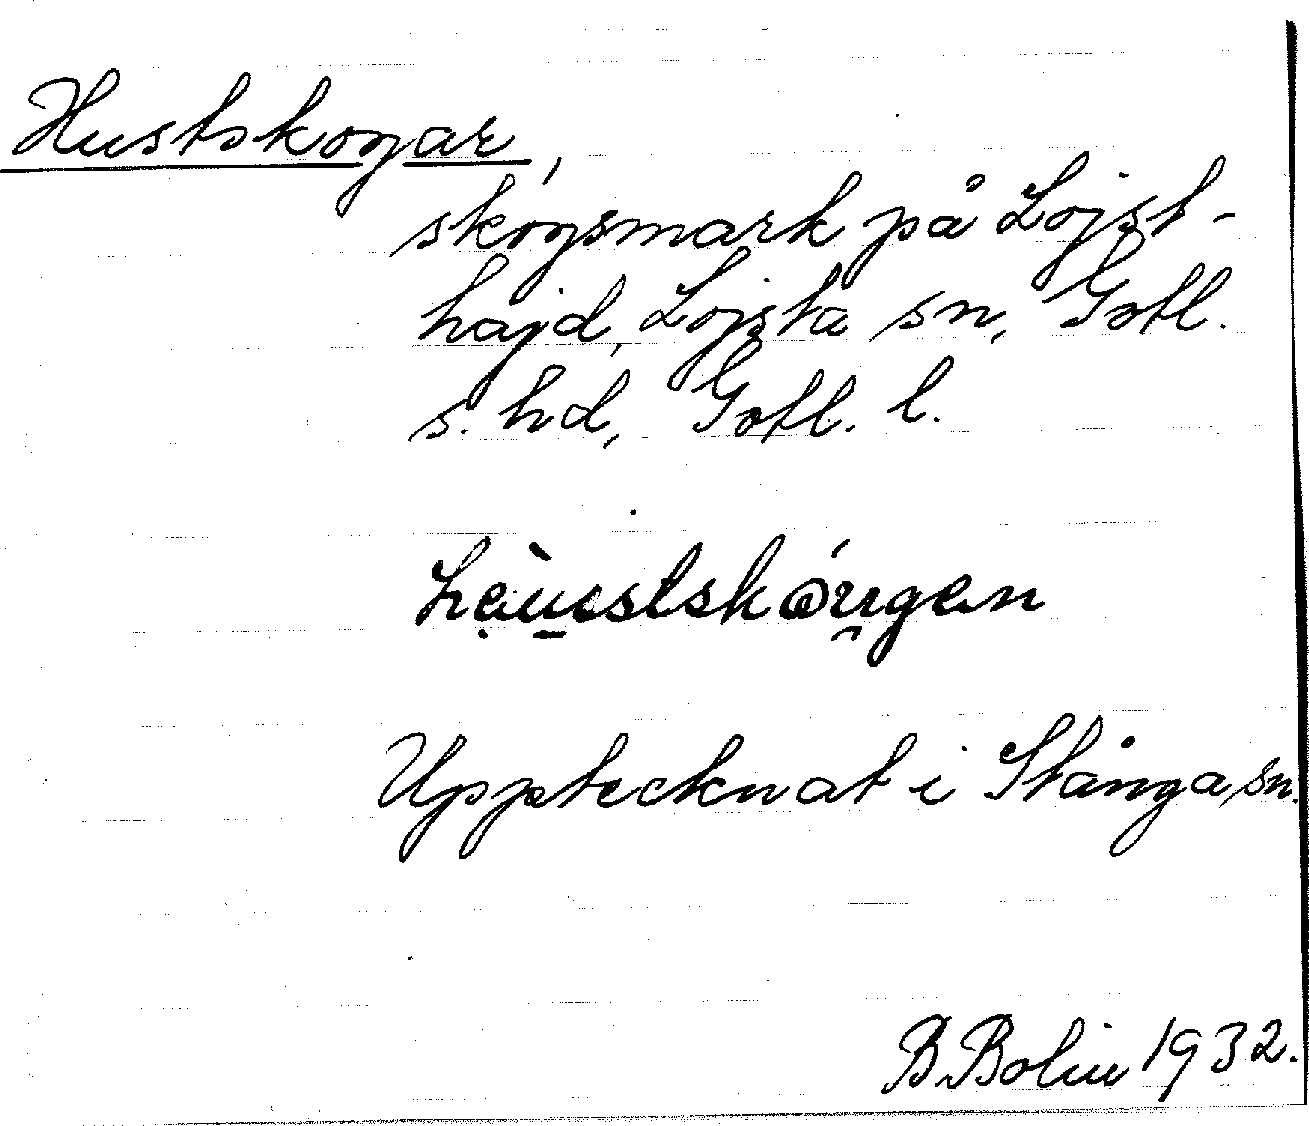 Hustskogar,
skogsmark på Lojst-
hajd, Lojsta sn, Gotl.
s. hd, Gotl. l.
Upptecknat i Stånga sn.
B. Bolin 1932.